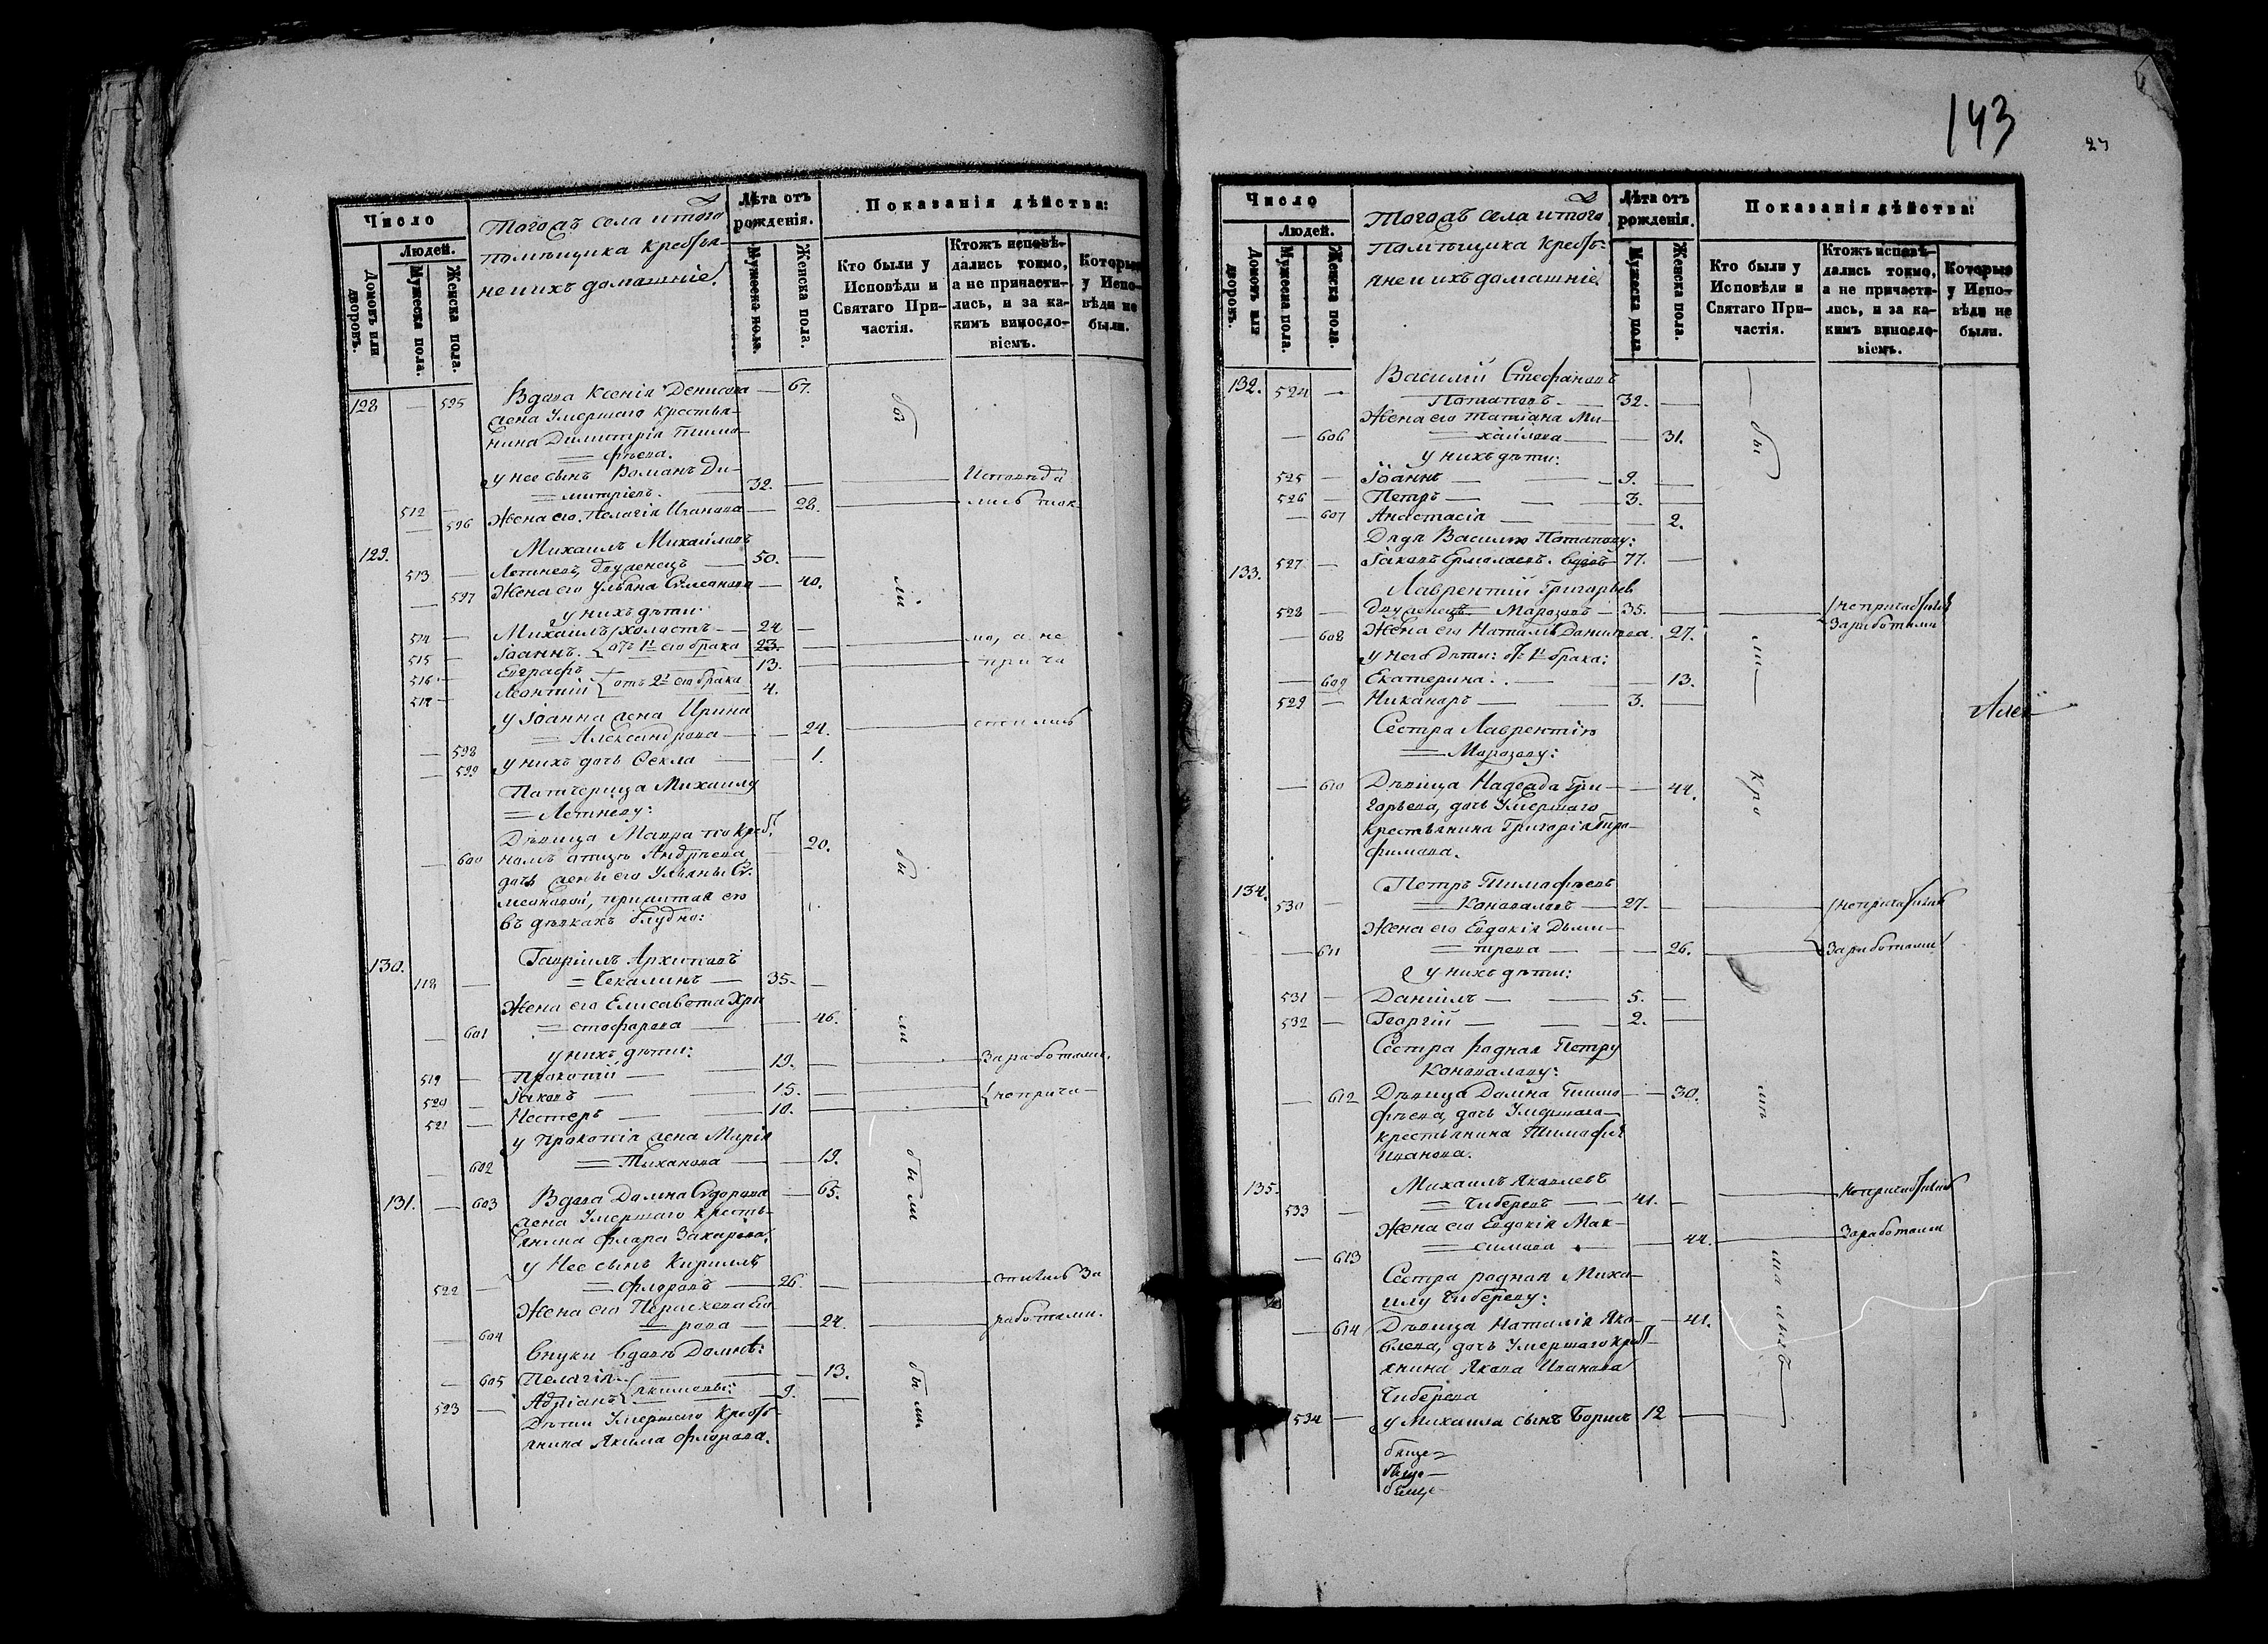 Число
Людей.
Домовъ или дворовъ.
Мужеска пола.
Женска пола.
Тогожъ села и того
помѣщика Кресть
не и ихъ домашніе.
Лѣта отъ
рожденія.
Мужеска пола.
Женска пола.
Показанія дѣйства:
Кто были у
Исповѣди и
Святаго При-
частія.
Ктожъ исповѣ-
дались токмо,
а не причасти-
лись, и за ка-
кимъ винословіемъ.
Которые
у Испо-
вѣди не
были.
128 — 595 Вдова Ксенія Денисова — 67.
жена Умершаго Крестья-
нина Димитрія Тимо-
фѣева.
у нее сынъ Романъ Ди-
512 — митріевъ. 32. — Исповѣда
— 596 Жена его Пелагія Иванова — 28. — лись ток
129. Михаилъ Михайловъ
513 — Летневъ, двуженецъ — 50. —
— 597 Жена его Ульяна Симеонова — 40.
у нихъ дѣти:
514 — Михаилъ холостъ — 24 —
515 — Іоаннъ. отъ 1го его брака 23. — мо, а не
516 — Евграфъ 13. — прича
517 — Леонтій отъ 2го его брака 4.
у Іоанна жена Ирина
— 598 Александрова — 24. — стились
— 599 у нихъ дочь Ѳекла — 1.
Патчерица Михаилу
Летневу:
Дѣвица Мавра по крест.
— 600 номъ отцѣ Андрѣева — 20.
дочь жены его Ульяны Си-
меоновой, прижитая ею
въ дѣвкахъ блудно:
130. Гавріилъ Архиповъ
118 — Чекалинъ — 35. —
Жена его Елисавета Хри
— 601 стофорова — 46.
у нихъ дѣти:
519 — Прокопій — 19. — За работами.
520 — Іаковъ — 15. —
521 — Нестеръ — 10. — неприча
у Прокопія жена Марія
— 602 Тиханова — 19.
131. — 603 Вдова Домна Сидорова — 65.
жена Умершаго кресть-
янина Флора Захарова.
у Нее сынъ Кириллъ
522 — Флоровъ — 26 — стились За
Жена его Параскева Его
— 604 рова — 24. — работами.
Внуки вдовѣ Домнѣ:
— 605 Пелагія — 13.
523 — Адріанъ Якимовы: — 9. —
Дѣти Умершаго Кресть-
янина Якима Флорова.
бы
ли
бы
ли
были
были
143
23
Число
Людей.
Домовъ или дворовъ.
Мужеска пола.
Женска пола.
Тогожъ села и того
помѣщика Кресть-
яне и ихъ домашніе.
Лѣта отъ
рожденія.
Мужеска пола.
Женска пола.
Показанія дѣйства:
Кто были у
Исповѣди и
Святаго При-
частія.
Ктожъ исповѣ-
дались токмо,
а не причасти-
лись, и за ка-
кимъ винословіемъ.
Которые
у Испо-
вѣди не
были.
132. 524 — Василій Стефановъ
Потаповъ — 32. —
Жена его Татіана Ми-
— 606 хайлова — 31.
у нихъ дѣти:
525 — Іоаннъ — 9. —
526 — Петръ — 3. —
— 607 Анастасія — 2.
Дядя Василію Потапову:
527 — Іаковъ Ермолаевъ. вдовъ 77. —
133. Лаврентій Григорьев
528 — двуженецъ Морозовъ — 35. — непричастились
— 608 Жена его Наталія Данилова. 27. За работами
у него дѣти: отъ 1го брака:
— 609 Екатерина — 13.
529 — Никаноръ — 3. —
Сестра Лаврентію
Морозову:
— 610 Дѣвица Надежда Гри- — 44.
горьева, дочь Умершаго
крестьянина Григорія
фимова.
134. Петръ Тимофѣевъ
530 — Коноваловъ — 27. — непричастились
Жена его Евдокія Дьми-
— 611 трева — 26. — За работами
у нихъ дѣти:
531 — Даніилъ — 5. —
532 — Георгій — 2. —
Сестра родная Петру
Коновалову:
— 612 Дѣвица Домна Тимо — 30.
фѣева, дочь Умершаго
крестьянина Тимофея
Иванова.
135. Михаилъ Яковлевъ
533 — Чиберевъ — 41. — непричастились
Жена его Евдокія Мак-
— 613 симова — 44. — За работами
Сестра родная Миха-
илу Чибереву:
— 614 Дѣвица Наталія Яко- — 41.
влева, дочь Умершаго крест-
янина Якова Иванова
Чиберева
534 — у Михаила сынъ Борисъ 12 —
бы
ли
кро